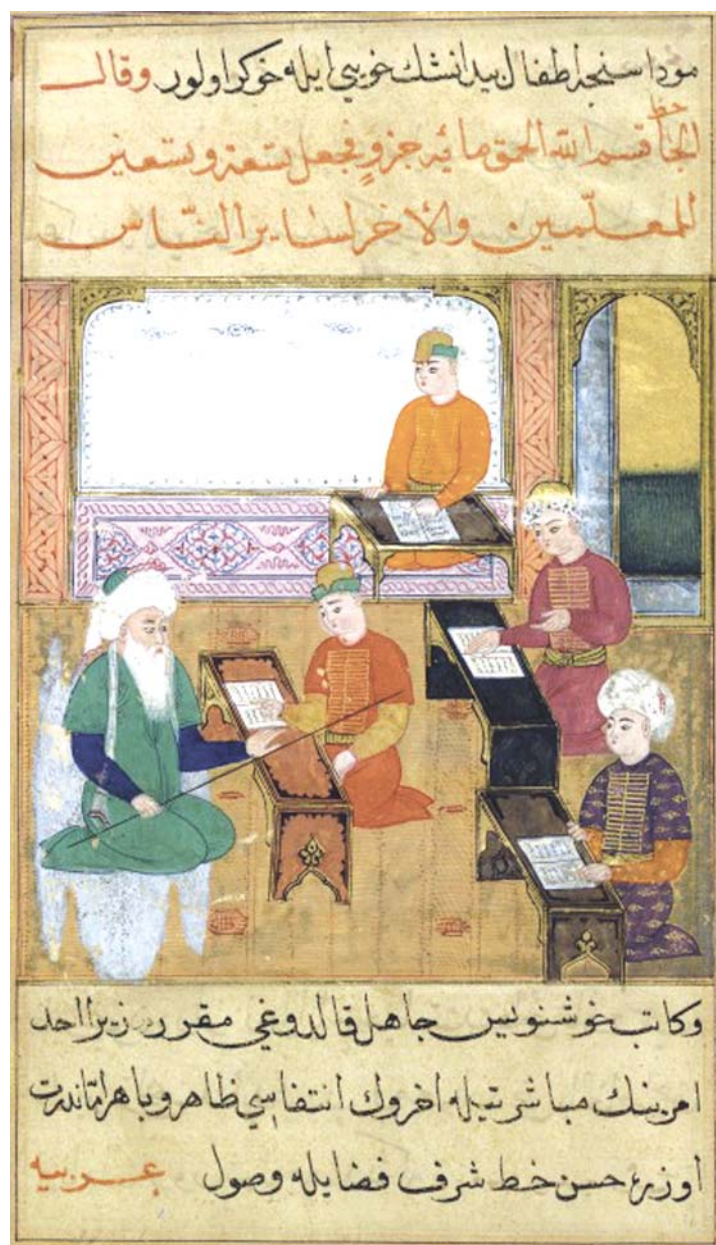 موداسنجه اطفال بيدانشك خويي ايله خوكر اولور وقال
الجاحظ قسم الله الحمق مائية جزوٍ فجعل تسعة وتسعين
للمعلّمين والاخر لساير النّاس
وكاتب خوشنويس جاهل قالدوغي مقرردر زيرا احد
امرينك مباشرتيله اخروك انتفاسي ظاهر وباهر امّا ندرت
اوزره حسن خط شرف فضايله وصول عربيه